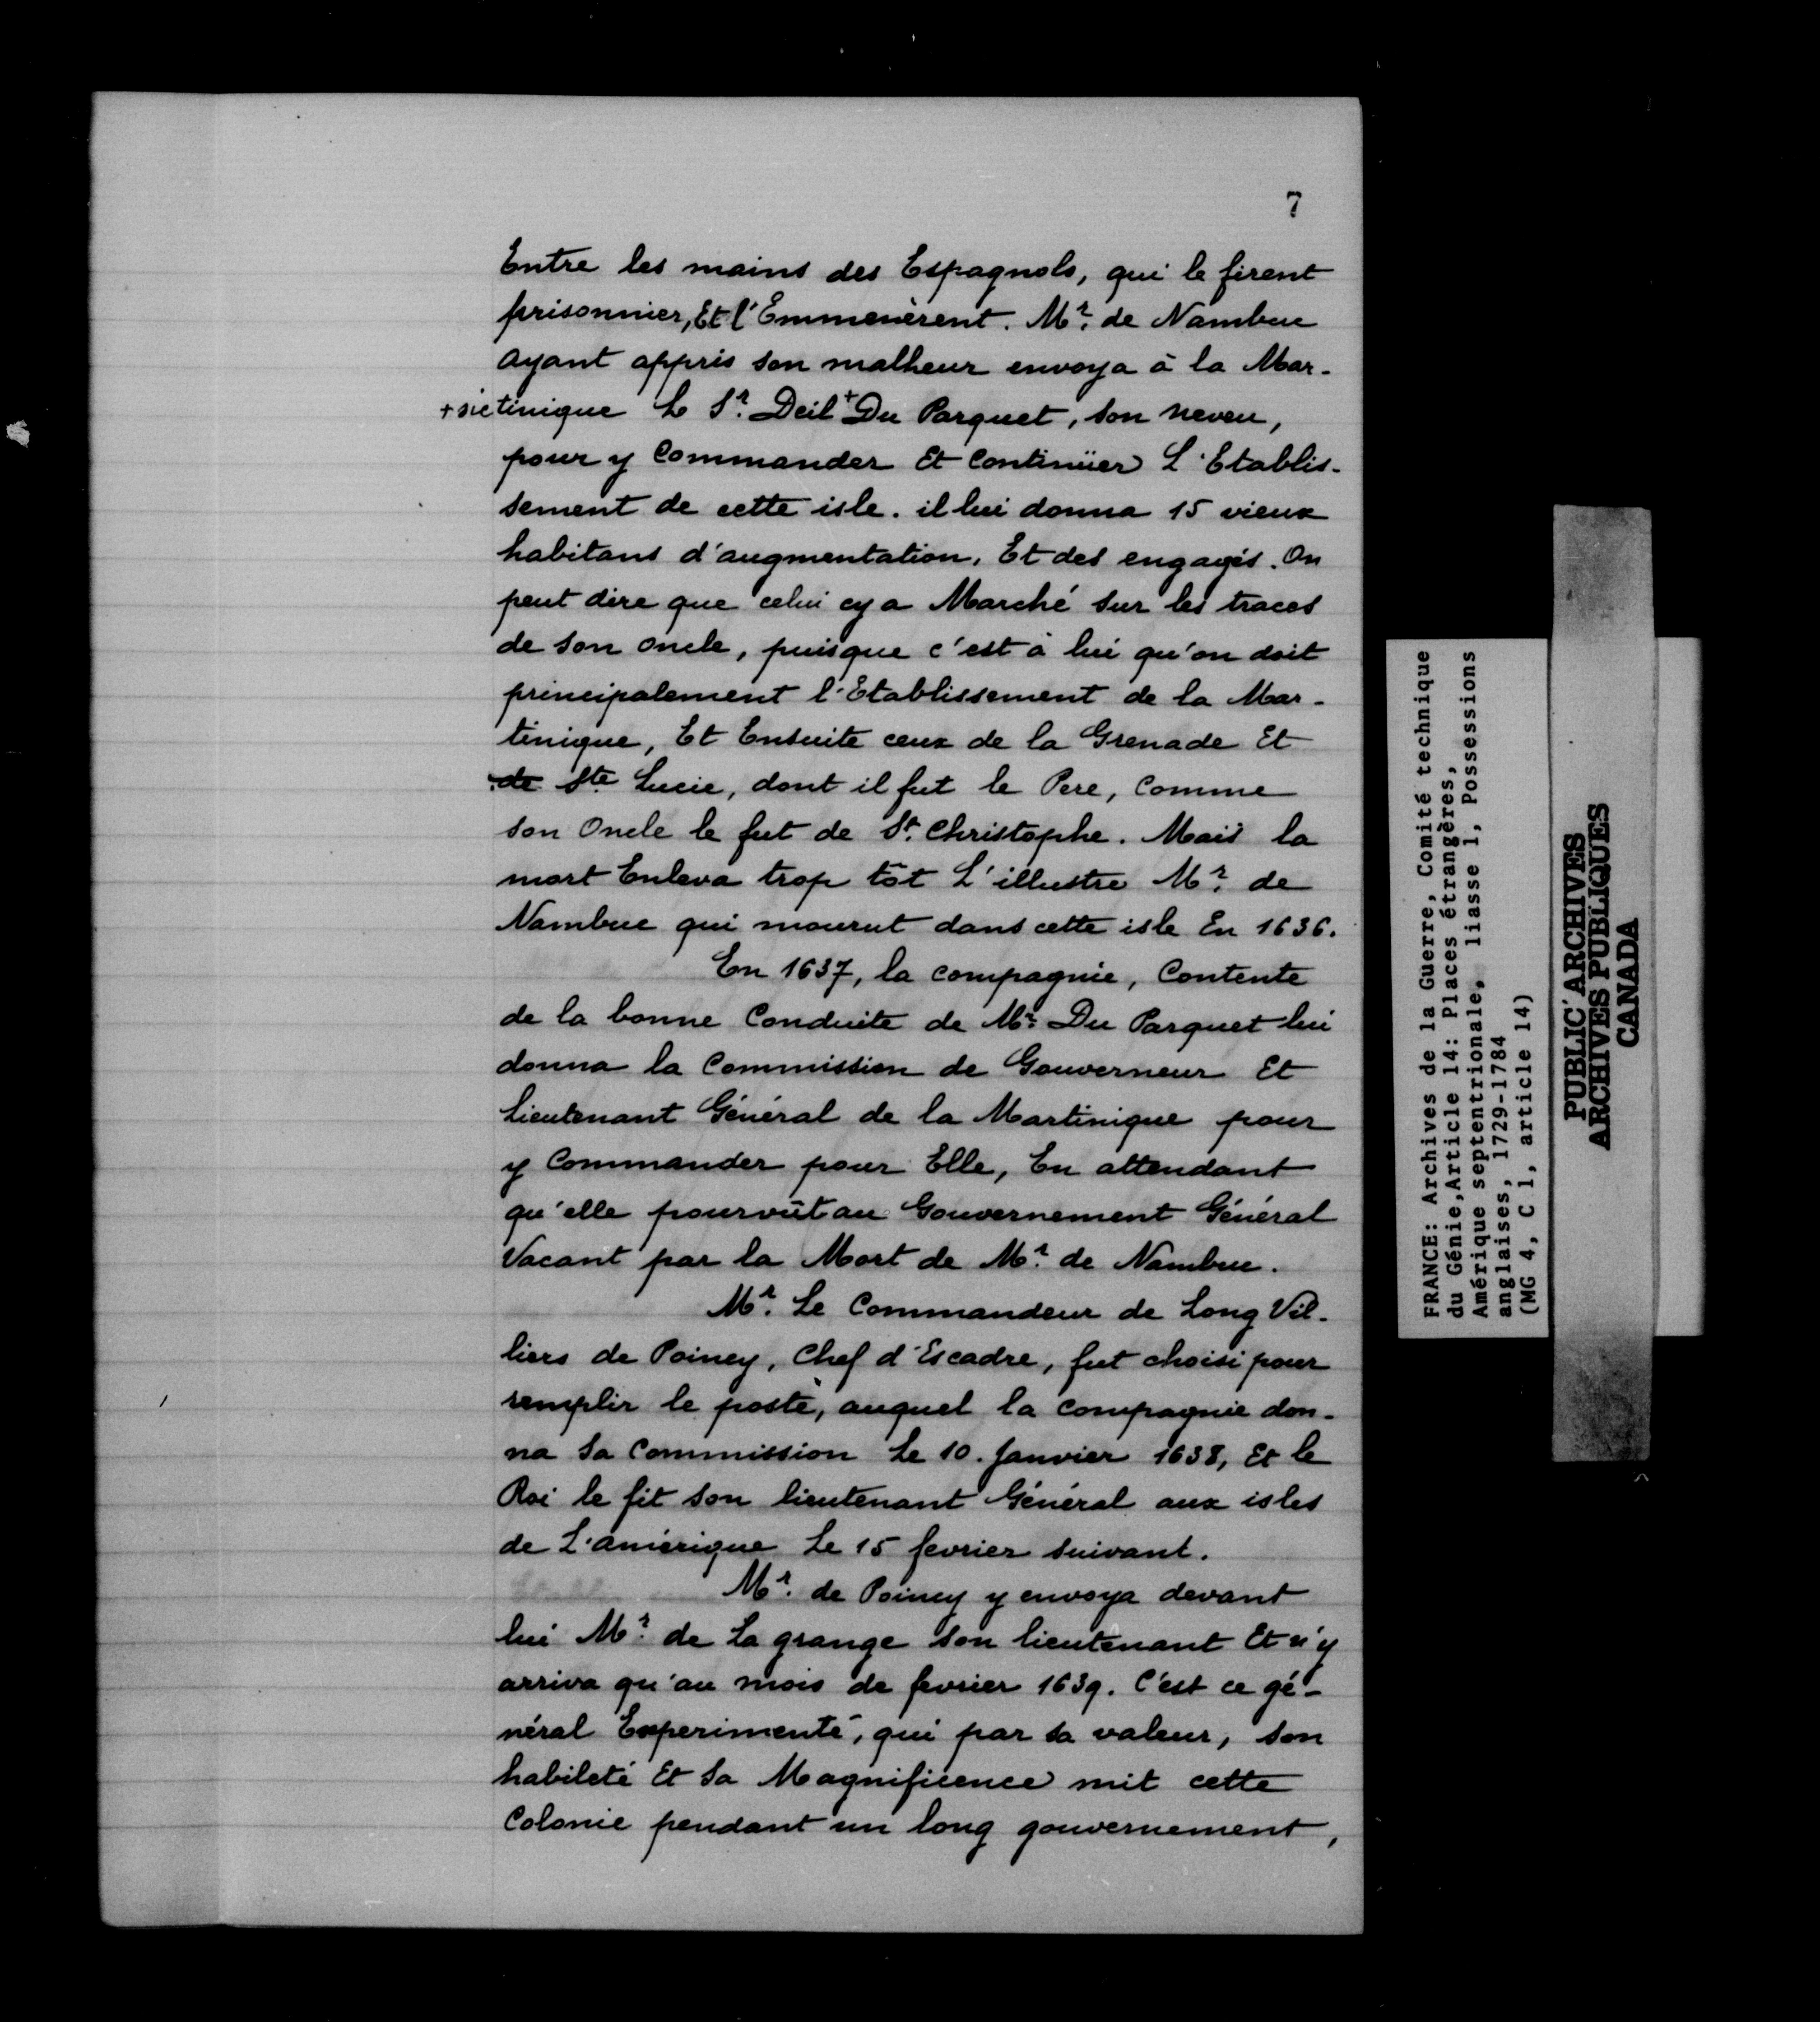 7
Entre les mains des Espagnols, qui le firent
prisonnier, Et l'Emmenèrent. Mr. de Nambuc
ayant appris son malheur envoya à la Mar-
+ sic tinique Le Sr. Deil + Du Parquet, son neveu,
pour y Commander Et Continüer L'Etablis-
sement de cette isle. il lui donna 15 vieux
habitans d'augmentation, Et des engagés. On
peut dire que celui cy a Marché sur les traces
de son oncle, puisque c'est à lui qu'on doit
principalement l'Etablissement de la Mar-
tinique, Et Ensuite ceux de la Grenade Et
de Ste Lucie, dont il fut le Pere, Comme
son Oncle le fut de St. Christophe. Mais la
mort Enleva trop tôt L'illustre Mr. de
Nambuc qui mourut dans cette isle En 1636.
En 1637, la compagnie, Contente
de la bonne Conduite de Mr. Du Parquet lui
donna la Commission de Gouverneur Et
Lieutenant Général de la Martinique pour
y Commander pour Elle, En attendant
qu'elle pourvût au Gouvernement Général
Vacant par la Mort de Mr. de Nambuc.
Mr. Le Commandeur de Long Vil-
liers de Poincy, Chef d'Escadre, fut choisi pour
remplir le poste, auquel la Compagnie don-
na sa Commission Le 10. Janvier 1638, Et le
Roi le fit son lieutenant Général aux isles
de L'amérique Le 15 fevrier suivant.
Mr. de Poincy y envoya devant
lui Mr. de La grange son lieutenant Et n'y
arriva qu'au mois de fevrier 1639. C'est ce gé-
néral Experimenté, qui par sa valeur, son
habileté Et sa Magnificence mit cette
Colonie pendant un long gouvernement,
FRANCE: Archives de la Guerre, Comité technique
du Génie, Article 14: Places étrangères,
Amérique septentrionale, liasse 1, Possessions
anglaises, 1729-1784
(MG 4, C 1, article 14)
PUBLIC ARCHIVES
ARCHIVES PUBLIQUES
CANADA